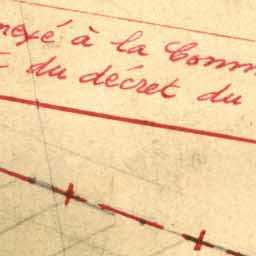 nexé à la Comm
du décret du